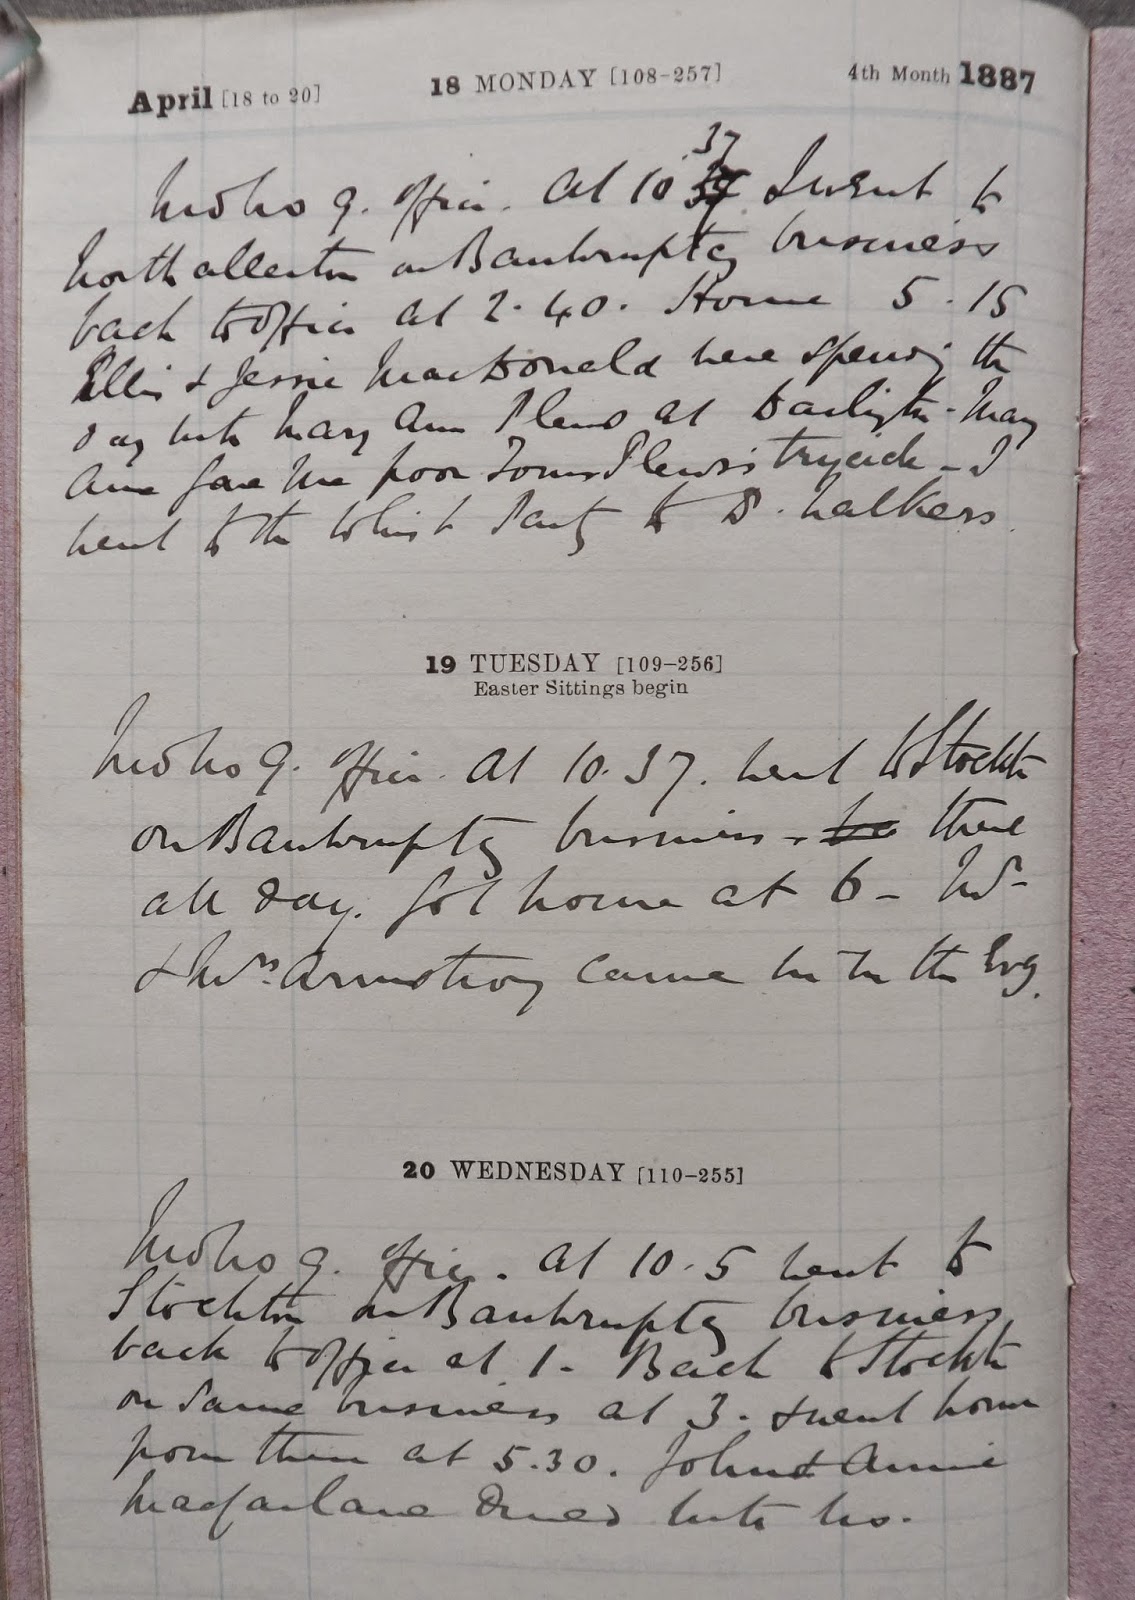 April [18 to 20]
18 MONDAY [108-257]
4th Month 1887
37
9. Office. At 10 I went to
Northallerton on Bankruptcy business
back to office at 2.40. Home 5.15
Ellis & Jessie MacDonald were spending the
day with Mary Ann Plews at Darlington - Mary
Ann gave me poor Toms Plews's trycicle - I
went to the Whist Party to D. Walkers.
19 TUESDAY [109-256]
Easter Sittings begin
9. Office. At 10.37. went to Stockton
on Bankruptcy business - there
all day. Got home at 6 - Mr
& Mrs. Armstrong came in in the Evg.
20 WEDNESDAY [110-255]
9. Office. At 10.5 went to
Stockton on Bankruptcy business
back to office at 1 - Back to Stockton
on same business at 3. & went home
from there at 5.30. John & Annie
Macfarlane dined with us.